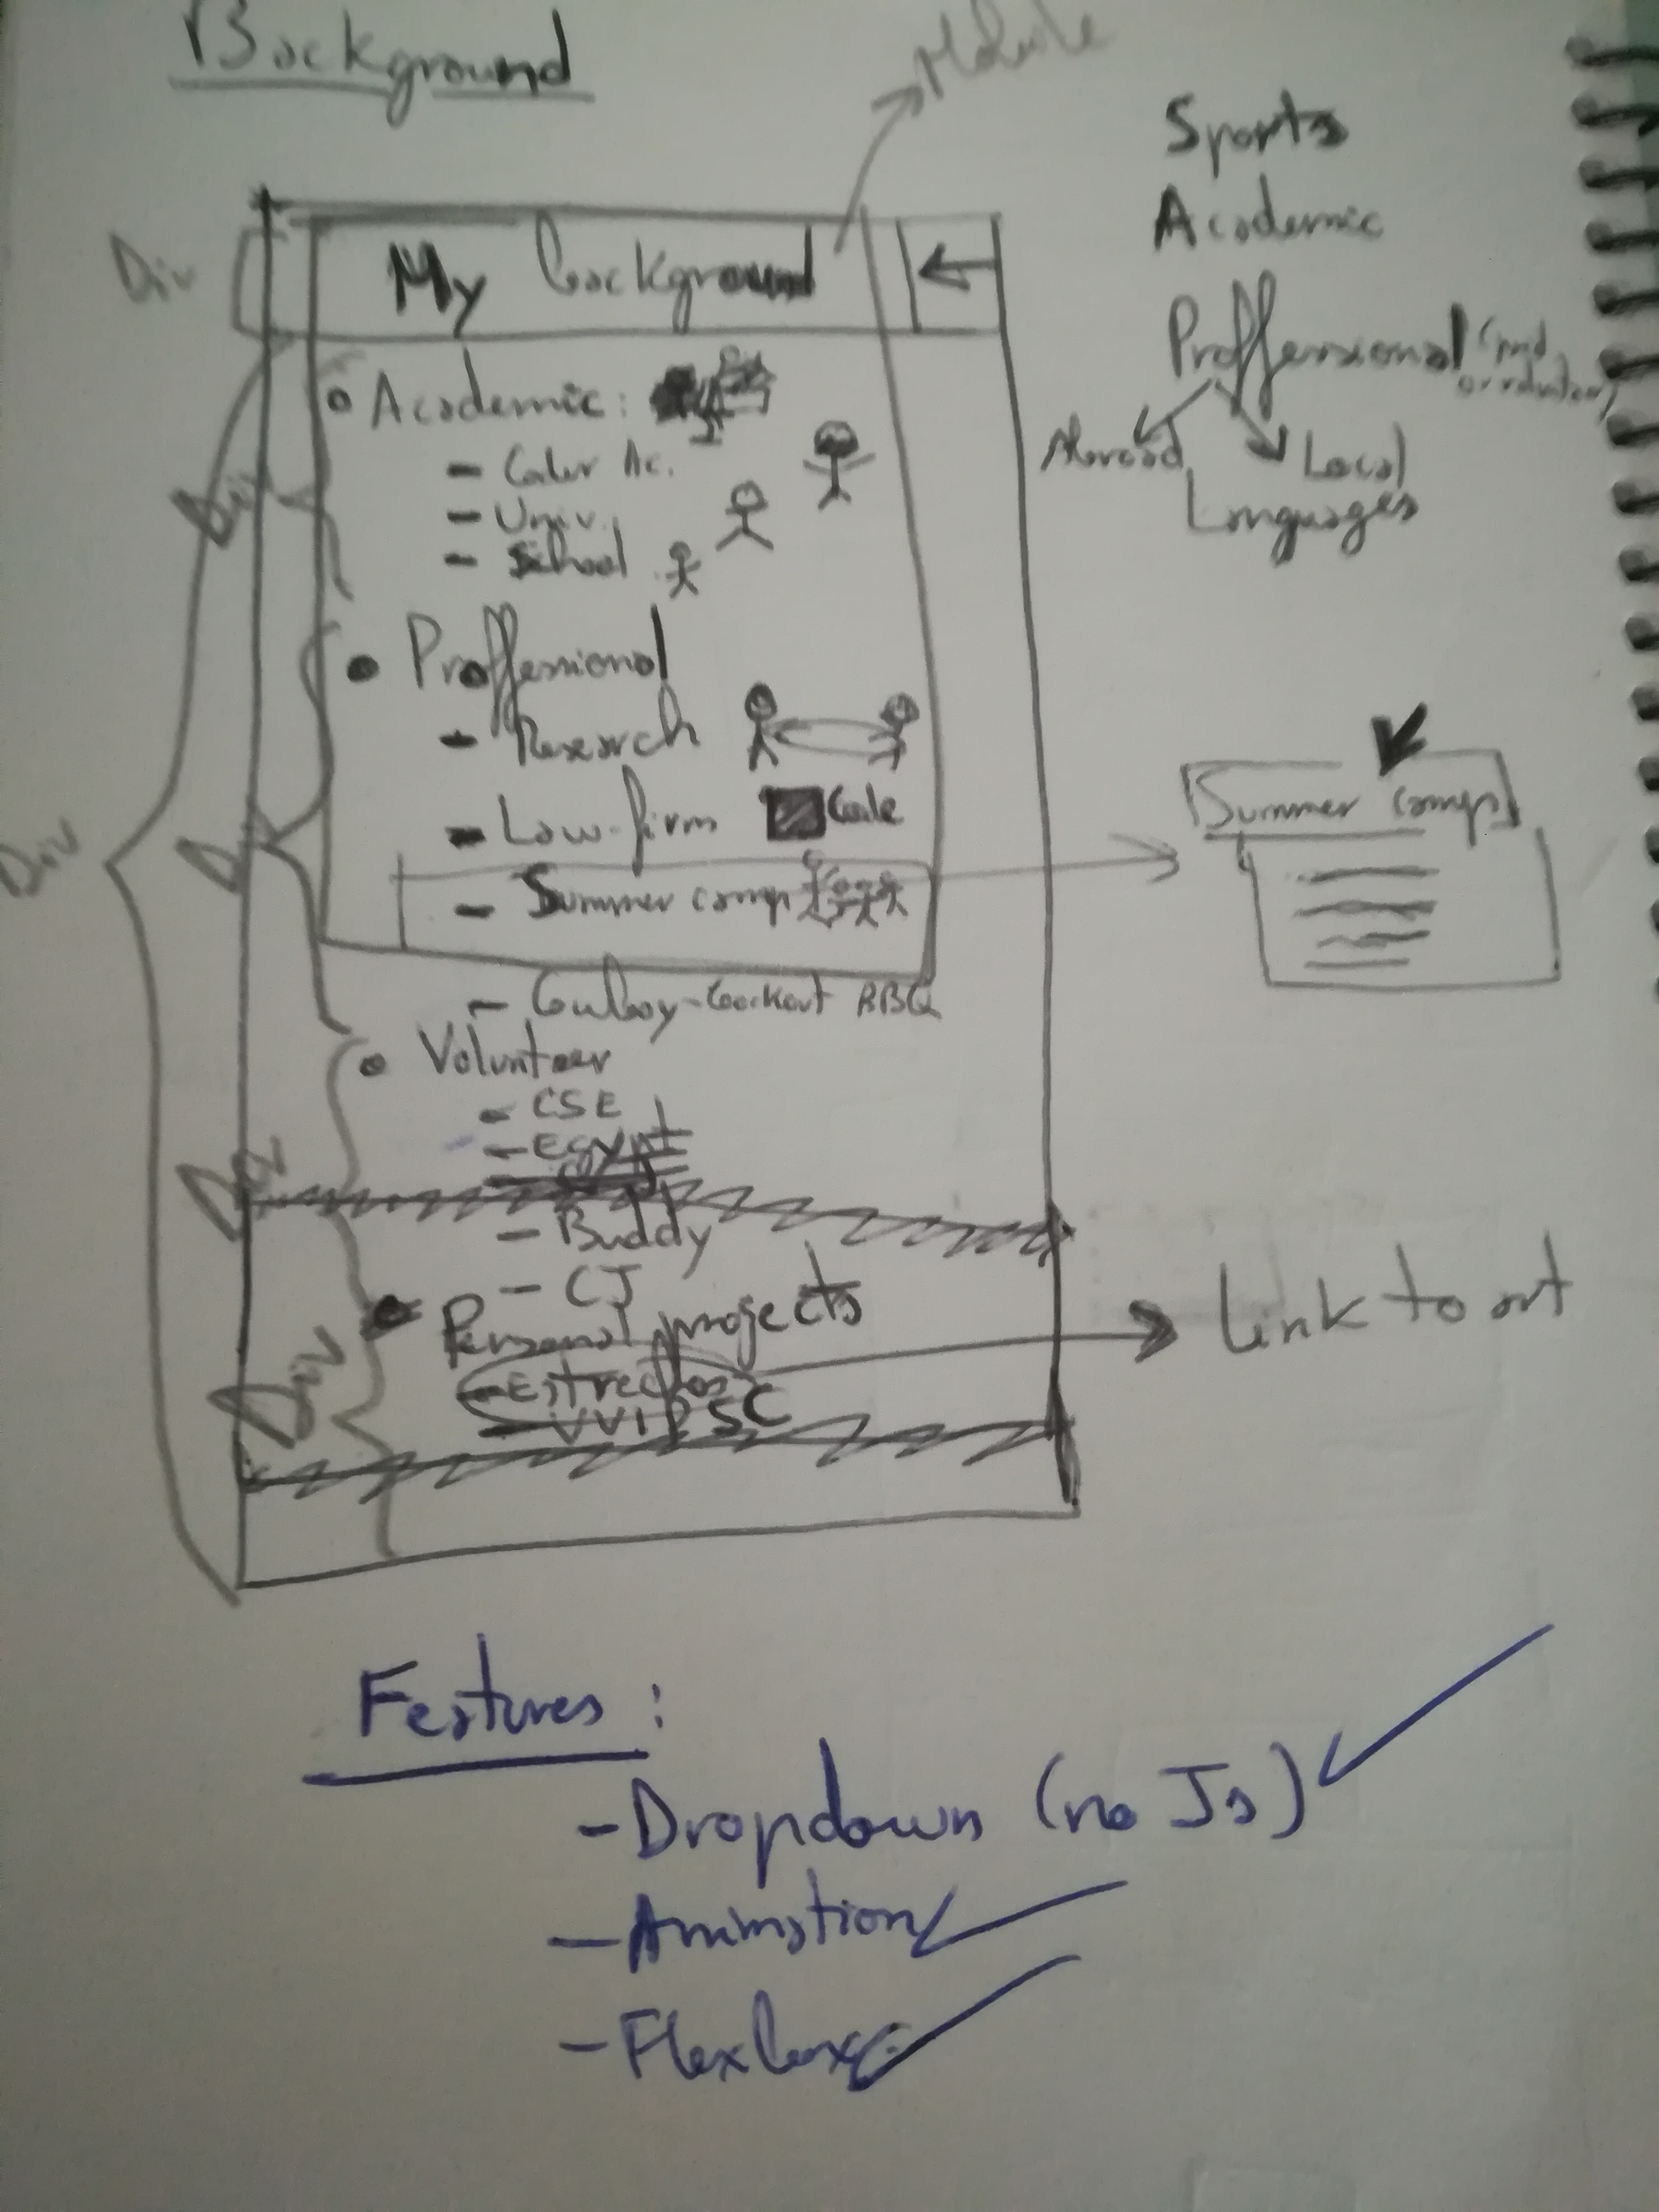 Background
Mobile
Sports
Academic
Proffessional (and
or volunteer)
Abroad Local
Languages
Div
My background
Academic:
- Coder Ac.
- Univ.
- School
Div
Proffessional
- Research
- Law-firm Code
- Summer camp
Summer camp
Div
- Cowboy-Cookout BBQ
Volunteer
- CSE
- Egypt
Div
- Buddy
- CJ
Personal projects
- Estrellas
- VVIPSC
Link to art
Div
Features:
- Dropdown (no Js)
- Animation
- Flexbox